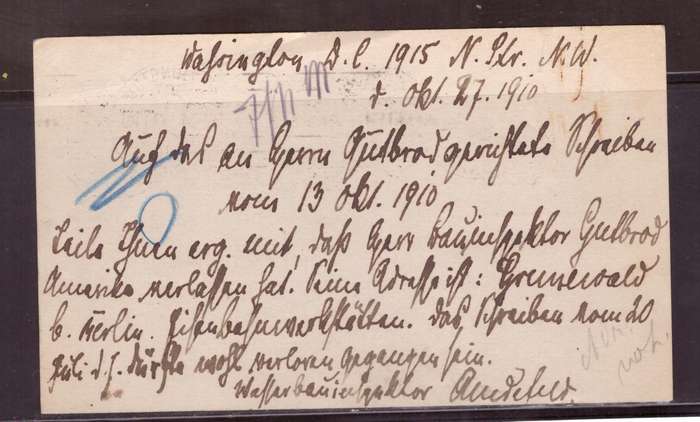 Washington D.C. 1915 N. Str. N.W.
d. Okt. 27. 1910
Auf das an Herrn Gutbrod gerichtete Schreiben
vom 13 Okt. 1910
teile Ihnen erg. mit, daß Herr Bauinspektor Gutbrod
Amerika verlassen hat. Seine Adresse ist: Grunewald
b. Berlin. Eisenbahnwerkstätten. Das Schreiben vom 20
Juli d.J. dürfte wohl verloren gegangen sein.
Wasserbauinspektor